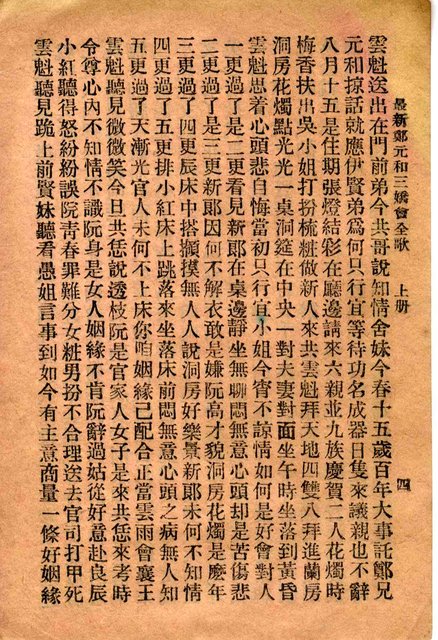 最新鄭元和三嬌會全歌　上册　四
雲魁送出在門前弟今共哥說知情舍妹今春十五歲百年大事託鄭兄
元和掠話就應伊賢弟為何只行宜等待功名成器日隻來議親也不辭
八月十五是住期張燈結彩在廳邊請來六親並九族慶賀二人花燭時
梅香扶出吳小姐打扮梳粧做新人來共雲魁拜天地四雙八拜進蘭房
洞房花燭點光光一桌洞筵在中央一對夫妻對面坐午時坐落到黃昏
雲魁思着心頭悲自悔當初只行宜小姐今宵不諒情如何是好會對人
一更過了是二更看見新郞在桌邊靜坐無聊悶無意心頭却是苦傷悲
二更過了是三更新郞因何不解衣敢是嫌阮高才貌洞房花燭是麽年
三更過了四更辰床中搭㩧摸無人說洞房好樂景新郞未何不知情
四更過了五更排小紅床上跳落來坐落床前悶無意心頭之病無人知
五更過了天漸光官人未何不上床你咱姻緣已配合正當雲雨會襄王
雲魁聽見微微笑今旦共恁說透枝阮是官家人女子是來共恁來考時
令尊心內不知情不識阮身是女人姻緣不肯阮辭過姑從好意赴良辰
小紅聽得怒紛紛誤阮靑春罪難分女粧男扮不合理送去官司打甲死
雲魁聽見跪上前賢妹聽看愚姐言事到如今有主意商量一條好姻緣